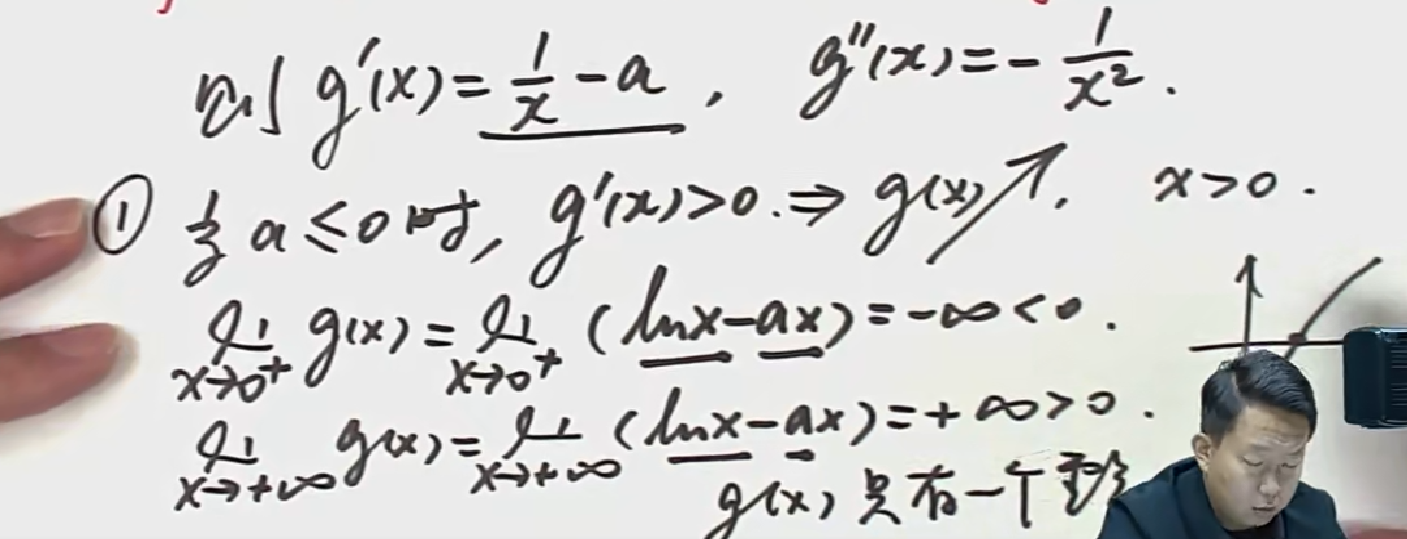 则 g'(x)=1/x-a, g''(x)=-1/x².
① 当 a≤0时, g'(x)>0.⇒ g(x)↗. x>0.
lim x→0⁺ g(x)=lim x→0⁺ (lnx-ax)=-∞<0.
lim x→+∞ g(x)=lim x→+∞ (lnx-ax)=+∞>0.
g(x) 只有一个